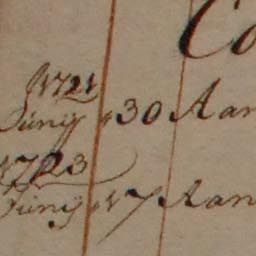 Co
1721
Junij 30 Aan
1723
Junij 17 Aan